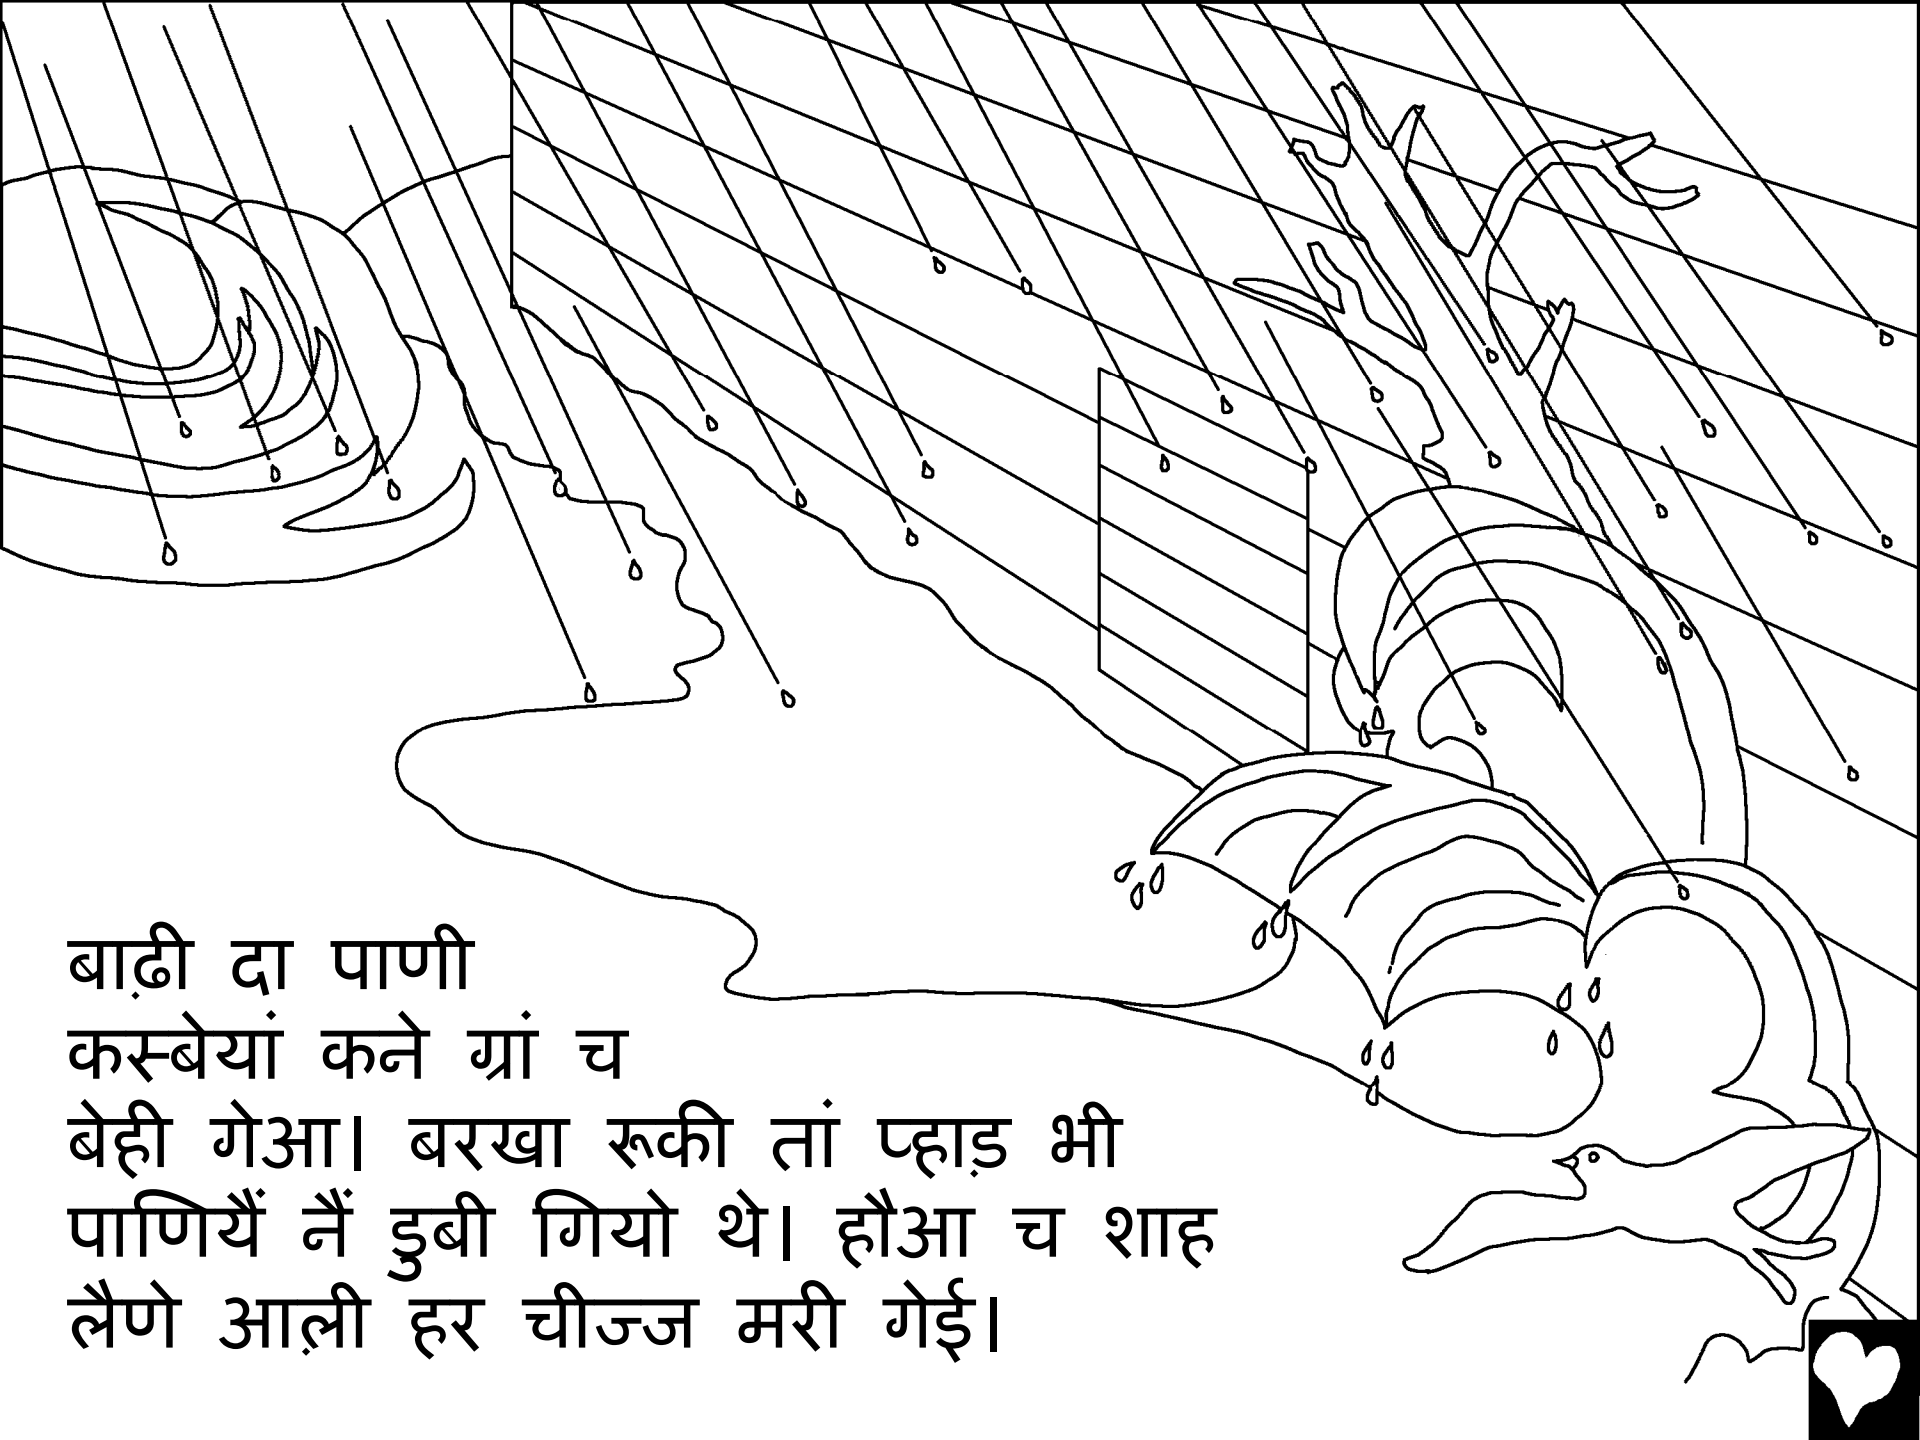 बाढ़ी दा पाणी
कस्बेयां कने ग्रां च
बेही गेआ। बरखा रूकी तां प्हाड़ भी
पाणियैं नैं डुबी गियो थे। हौआ च शाह
लैणे आल़ी हर चीज्ज मरी गेई।